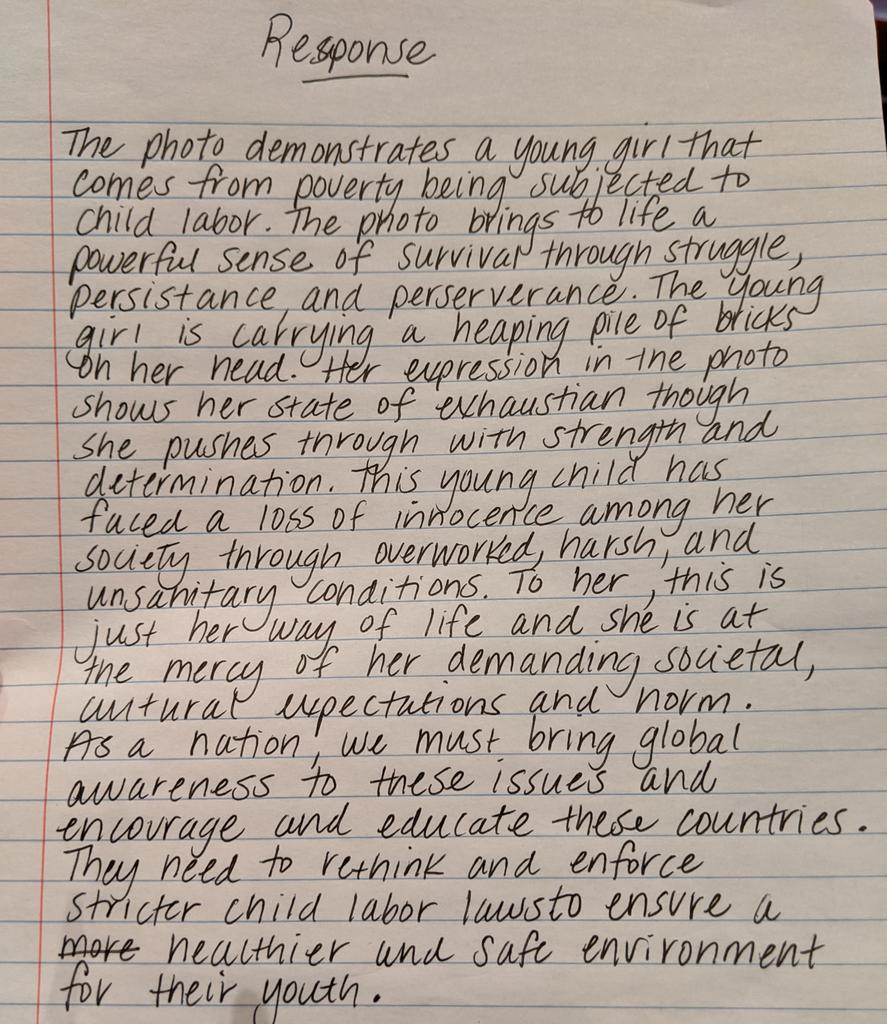 Response
The photo demonstrates a young girl that
comes from poverty being subjected to
child labor. The photo brings to life a
powerful sense of survival through struggle,
persistance, and perserverance. The young
girl is carrying a heaping pile of bricks
on her head. Her expression in the photo
shows her state of exhaustian though
she pushes through with strength and
determination. This young child has
faced a loss of innocence among her
society through overworked, harsh, and
unsanitary conditions. To her, this is
just her way of life and she is at
the mercy of her demanding societal,
cultural expectations and norm.
As a nation, we must bring global
awareness to these issues and
encourage and educate these countries.
They need to rethink and enforce
stricter child labor laws to ensure a
more healthier and safe environment
for their youth.